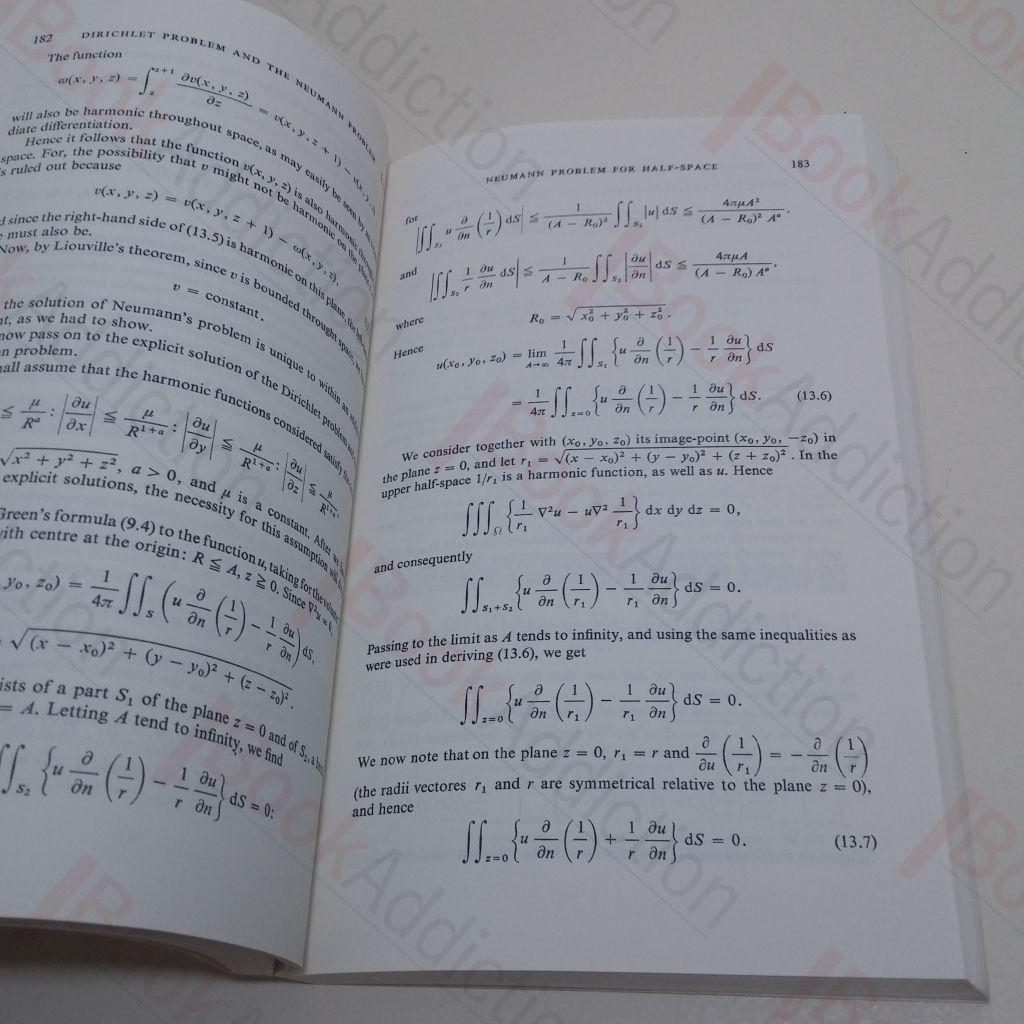 182 DIRICHLET PROBLEM AND THE NEUMANN PROBLEM
The function
ω(x, y, z) = ∫_z^{z+1} ∂v(x, y, z)/∂z = v(x, y, z + 1) − v(x, y, z)
will also be harmonic throughout space, as may easily be seen by
diate differentiation.
Hence it follows that the function v(x, y, z) is also harmonic
space. For, the possibility that v might not be harmonic on the plane
s ruled out because
v(x, y, z) = v(x, y, z + 1) − ω(x, y, z),
since the right-hand side of (13.5) is harmonic on this plane, the
must also be.
Now, by Liouville's theorem, since v is bounded throughout space,
v = constant.
the solution of Neumann's problem is unique to within an
t, as we had to show.
now pass on to the explicit solution of the Dirichlet problem
n problem.
all assume that the harmonic functions considered satisfy
≦ μ/R^a : |∂u/∂x| ≦ μ/R^{1+a} : |∂u/∂y| ≦ μ/R^{1+a} : |∂u/∂z| ≦ μ/R^{1+a}
√(x² + y² + z²), a > 0, and μ is a constant. After
explicit solutions, the necessity for this assumption will
Green's formula (9.4) to the function u, taking for the volume
with centre at the origin: R ≦ A, z ≧ 0. Since ∇²u = 0,
y₀, z₀) = 1/4π ∫∫_S (u ∂/∂n (1/r) − 1/r ∂u/∂n) dS,
√((x − x₀)² + (y − y₀)² + (z − z₀)²).
ists of a part S₁ of the plane z = 0 and of S₂, a
= A. Letting A tend to infinity, we find
∫∫_{S₂} {u ∂/∂n (1/r) − 1/r ∂u/∂n} dS = 0:
NEUMANN PROBLEM FOR HALF-SPACE 183
for
|∫∫_{S₂} u ∂/∂n (1/r) dS| ≦ 1/(A − R₀)² ∫∫_{S₂} |u| dS ≦ 4πμA²/((A − R₀)² A^a),
and
|∫∫_{S₂} 1/r ∂u/∂n dS| ≦ 1/(A − R₀) ∫∫_{S₂} |∂u/∂n| dS ≦ 4πμA/((A − R₀) A^a),
where
R₀ = √(x₀² + y₀² + z₀²).
Hence
u(x₀, y₀, z₀) = lim_{A→∞} 1/4π ∫∫_{S₁} {u ∂/∂n (1/r) − 1/r ∂u/∂n} dS
= 1/4π ∫∫_{z=0} {u ∂/∂n (1/r) − 1/r ∂u/∂n} dS. (13.6)
We consider together with (x₀, y₀, z₀) its image-point (x₀, y₀, −z₀) in
the plane z = 0, and let r₁ = √((x − x₀)² + (y − y₀)² + (z + z₀)²). In the
upper half-space 1/r₁ is a harmonic function, as well as u. Hence
∫∫∫_Ω {1/r₁ ∇²u − u∇² 1/r₁} dx dy dz = 0,
and consequently
∫∫_{S₁+S₂} {u ∂/∂n (1/r₁) − 1/r₁ ∂u/∂n} dS = 0.
Passing to the limit as A tends to infinity, and using the same inequalities as
were used in deriving (13.6), we get
∫∫_{z=0} {u ∂/∂n (1/r₁) − 1/r₁ ∂u/∂n} dS = 0.
We now note that on the plane z = 0, r₁ = r and ∂/∂u (1/r₁) = − ∂/∂n (1/r)
(the radii vectores r₁ and r are symmetrical relative to the plane z = 0),
and hence
∫∫_{z=0} {u ∂/∂n (1/r) + 1/r ∂u/∂n} dS = 0. (13.7)
BookAddiction